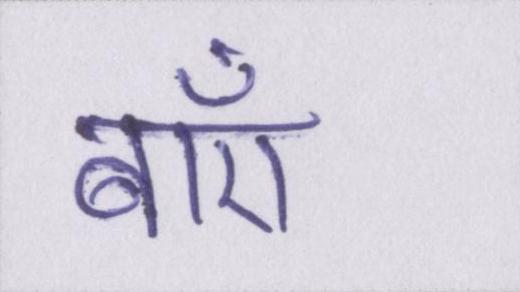 बाँए